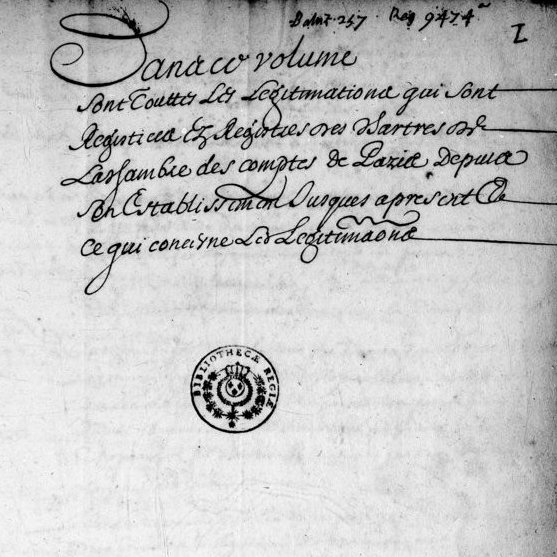 Baluz 257. Reg 9474ᵃ
I
Dans ce volume
sont Touttes Les Legitimations qui sont
Registrees Es Registres des Chartres de
La chambre des comptes de Paris Depuis
son Establissement Jusques apresent Et
ce qui concerne Les Legitimaons
BIBLIOTHECÆ REGIÆ